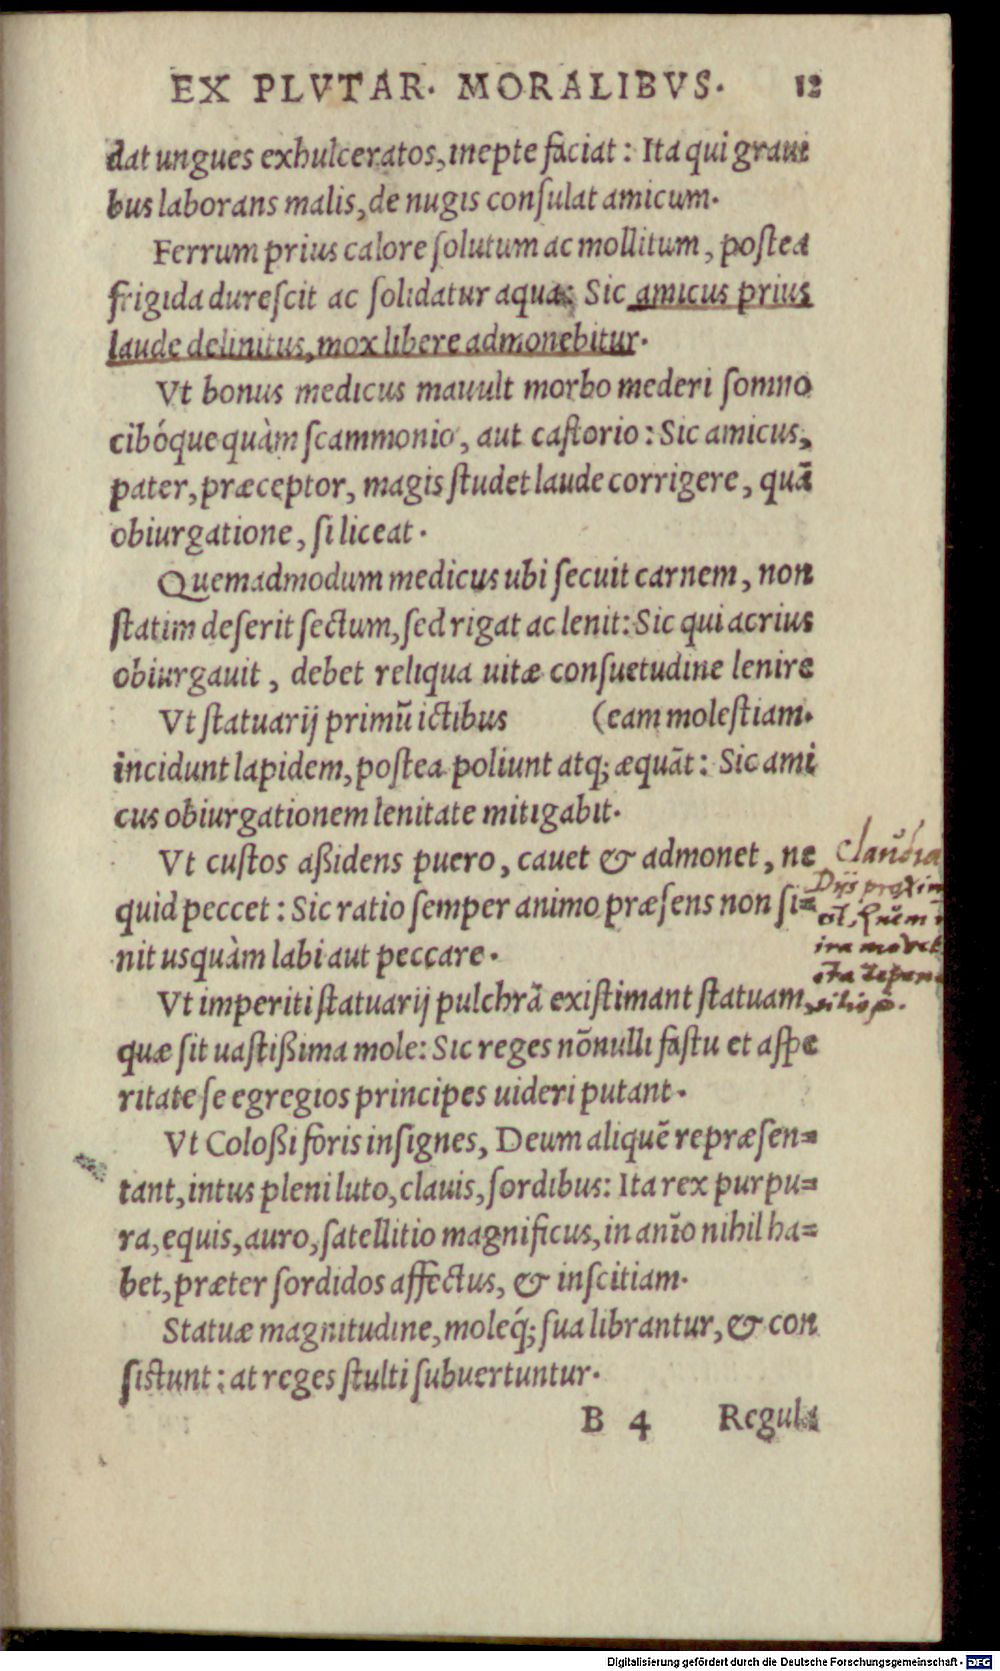 EX PLVTAR. MORALIBVS. 12
dat ungues exhulceratos, inepte faciat: Ita qui graui
bus laborans malis, de nugis conſulat amicum.
Ferrum prius calore ſolutum ac mollitum, poſtea
frigida dureſcit ac ſolidatur aqua: Sic amicus prius
laude delinitus, mox libere admonebitur.
Vt bonus medicus mauult morbo mederi ſomno
cibóque quàm ſcammonio, aut caſtorio: Sic amicus,
pater, præceptor, magis ſtudet laude corrigere, quā
obiurgatione, ſi liceat.
Quemadmodum medicus ubi ſecuit carnem, non
ſtatim deſerit ſectum, ſed rigat ac lenit: Sic qui acrius
obiurgauit, debet reliqua uitæ conſuetudine lenire
Vt ſtatuarij primū ictibus (eam moleſtiam.
incidunt lapidem, poſtea poliunt atq; æquāt: Sic ami
cus obiurgationem lenitate mitigabit.
Vt cuſtos aßidens puero, cauet & admonet, ne
quid peccet: Sic ratio ſemper animo præſens non ſi=
nit usquàm labi aut peccare.
Claudia
Dijs proxim
ira movet
Vt imperiti ſtatuarij pulchrā exiſtimant ſtatuam,
quæ ſit uaſtißima mole: Sic reges nōnulli faſtu et aſpe
ritate ſe egregios principes uideri putant.
Vt Coloßi foris inſignes, Deum aliquē repræſen=
tant, intus pleni luto, clauis, ſordibus: Ita rex purpu=
ra, equis, auro, ſatellitio magnificus, in anīo nihil ha=
bet, præter ſordidos affectus, & inſcitiam.
Statuæ magnitudine, moleq́; ſua librantur, & con
ſiſtunt: at reges ſtulti ſubuertuntur.
B 4 Regula
Digitalisierung gefördert durch die Deutsche Forschungsgemeinschaft - DFG